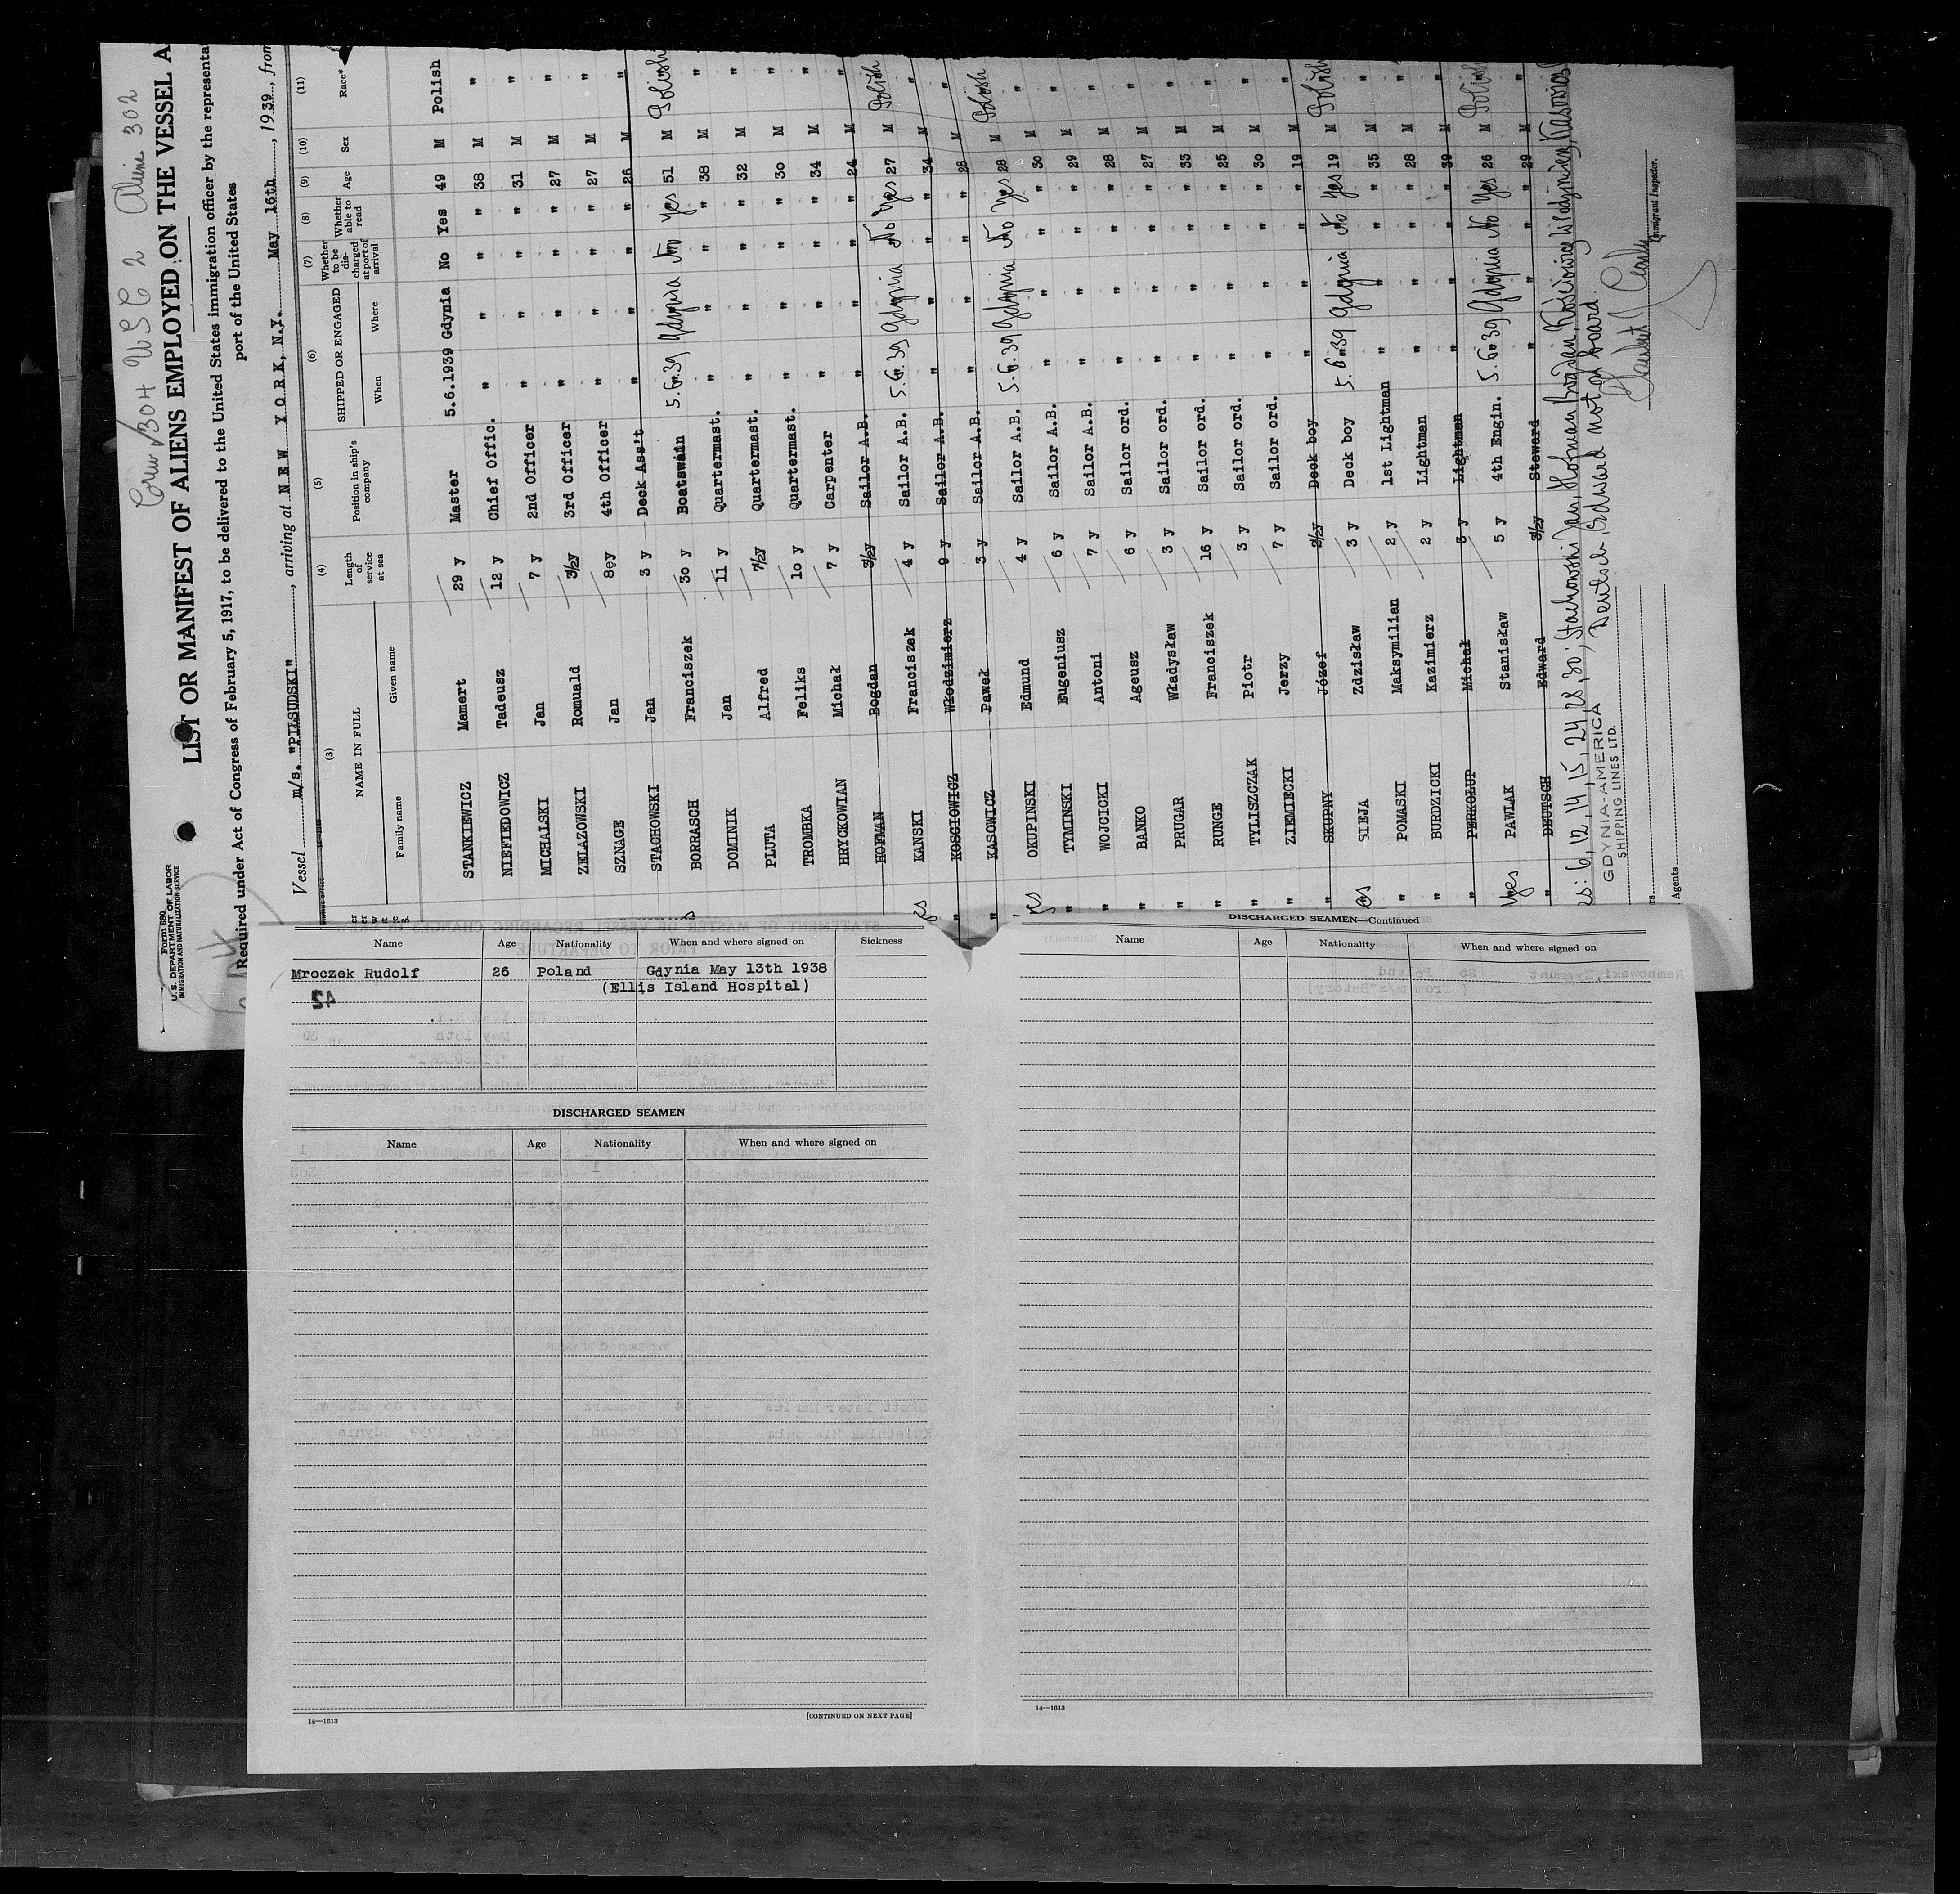 Crew 304 USC 2 Aliens 302
Form 680
U. S. DEPARTMENT OF LABOR
IMMIGRATION AND NATURALIZATION SERVICE
LIST OR MANIFEST OF ALIENS EMPLOYED ON THE VESSEL A
Required under Act of Congress of February 5, 1917, to be delivered to the United States immigration officer by the representa
port of the United States
Vessel m/s. "PIŁSUDSKI", arriving at NEW YORK, N.Y. May 16th, 1939, from
(3) (4) (5) (6) (7) (8) (9) (10) (11)
NAME IN FULL Length of service at sea Position in ship's company SHIPPED OR ENGAGED Whether to be discharged at port of arrival Whether able to read Age Sex Race*
Family name Given name When Where
STANKIEWICZ Mamert 29 y Master 5.6.1939 Gdynia No Yes 49 M Polish
NIEFIEDOWICZ Tadeusz 12 y Chief Offic. " " " " 38 M "
MICHALSKI Jan 7 y 2nd Officer " " " " 31 M "
ZELAZOWSKI Romuald 3½y 3rd Officer " " " " 27 M "
SZNAGE Jan 8 y 4th Officer " " " " 27 M "
STACHOWSKI Jan 3 y Deck Ass't " " " " 26 M "
BORRASCH Franciszek 30 y Boatswain 5.6.39 Gdynia No Yes 51 M Polish
DOMINIK Jan 11 y Quartermast. " " " " 38 M "
PLUTA Alfred 7½y Quartermast. " " " " 32 M "
TROMBKA Feliks 10 y Quartermast. " " " " 30 M "
HRYCKOWIAN Michał 7 y Carpenter " " " " 34 M "
HOFMAN Bogdan 3½y Sailor A.B. " " " " 24 M "
KANSKI Franciszek 4 y Sailor A.B. 5.6.39 Gdynia No Yes 27 M Polish
" KOSCIOWICZ Włodzimierz 9 y Sailor A.B. " " " " 34 M "
" KASOWICZ Paweł 3 y Sailor A.B. " " " " 28 M "
yes OKUPINSKI Edmund 4 y Sailor A.B. 5.6.39 Gdynia No Yes 28 M Polish
" TYMINSKI Eugeniusz 6 y Sailor A.B. " " " " 30 M "
" WOJCICKI Antoni 7 y Sailor A.B. " " " " 29 M "
" BANKO Ageusz 6 y Sailor ord. " " " " 28 M "
" PRUGAR Władysław 3 y Sailor ord. " " " " 27 M "
" RUNGE Franciszek 16 y Sailor ord. " " " " 33 M "
" TYLISZCZAK Piotr 3 y Sailor ord. " " " " 25 M "
" ZIEMIECKI Jerzy 7 y Sailor ord. " " " " 30 M "
" SKUPNY Józef 2½y Deck boy " " " " 19 M "
SIEJA Zdzisław 3 y Deck boy 5.6.39 Gdynia No Yes 19 M Polish
" POMASKI Maksymilian 2 y 1st Lightman " " " " 35 M "
" BURDZICKI Kazimierz 2 y Lightman " " " " 28 M "
" PERKOŁUP Michał 3 y Lightman " " " " 39 M "
Yes PAWLAK Stanisław 5 y 4th Engin. 5.6.39 Gdynia No Yes 26 M Polish
" DEUTSCH Edward 3½y Steward " " " " 29 M "
6, 12, 14, 15, 24, 28, 30; Stachowski Jan, Hofman Bogdan, Kościowicz
Deutsch Edward not on board.
GDYNIA-AMERICA
SHIPPING LINES LTD.
Agents
Immigrant Inspector.
Name Age Nationality When and where signed on Sickness
Mroczek Rudolf 26 Poland Gdynia May 13th 1938
(Ellis Island Hospital)
42
DISCHARGED SEAMEN
Name Age Nationality When and where signed on
14—1613 [CONTINUED ON NEXT PAGE]
DISCHARGED SEAMEN—Continued
Name Age Nationality When and where signed on
14—1613